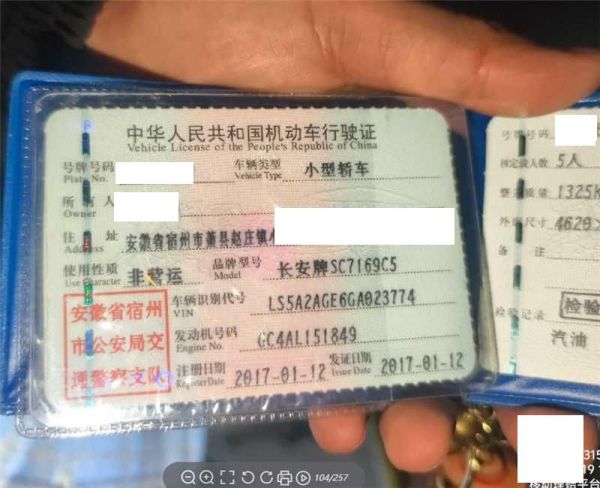 中华人民共和国机动车行驶证
Vehicle License of the People's Republic of China
号牌号码
Plate No.
车辆类型
Vehicle Type
小型轿车
所有人
Owner
住址
Address
安徽省宿州市萧县赵庄镇
使用性质
Use Character
非营运
品牌型号
Model
长安牌SC7169C5
安徽省宿州
市公安局交
通警察支队
车辆识别代号
VIN
LS5A2AGE6GA023774
发动机号码
Engine No.
GC4AL151849
注册日期
Register Date
2017-01-12
发证日期
Issue Date
2017-01-12
号牌号码
核定载人数 5人
整备质量 1325K
外廓尺寸 4620×
备注
检验记录
检验
汽油
104/257